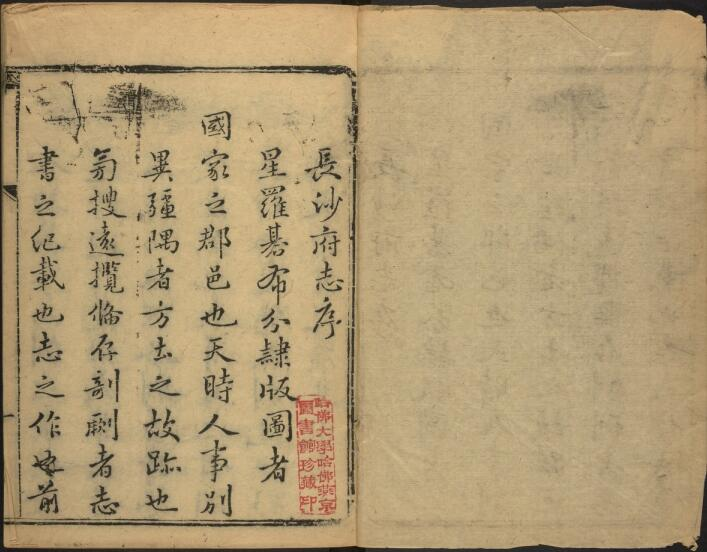 長沙府志序
星羅碁布分隸版圖者
國家之郡邑也天時人事別
異疆隅者方土之故跡也
旁搜遠攬備存剞劂者志
書之纪載也志之作也前
哈佛大學哈佛燕京
圖書館珍藏印